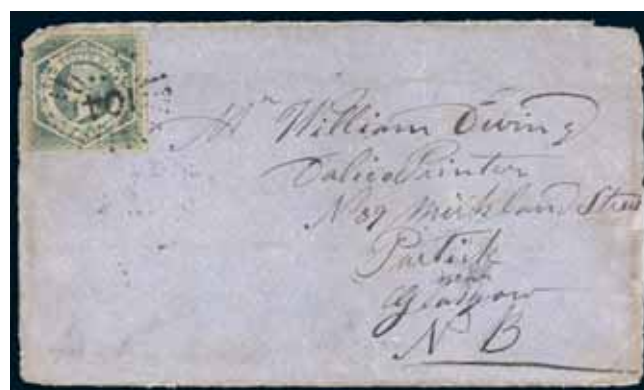 104
Mr William Ewing
Calico Printer
No 39 Merkland Street
Partick
near
Glasgow
N B